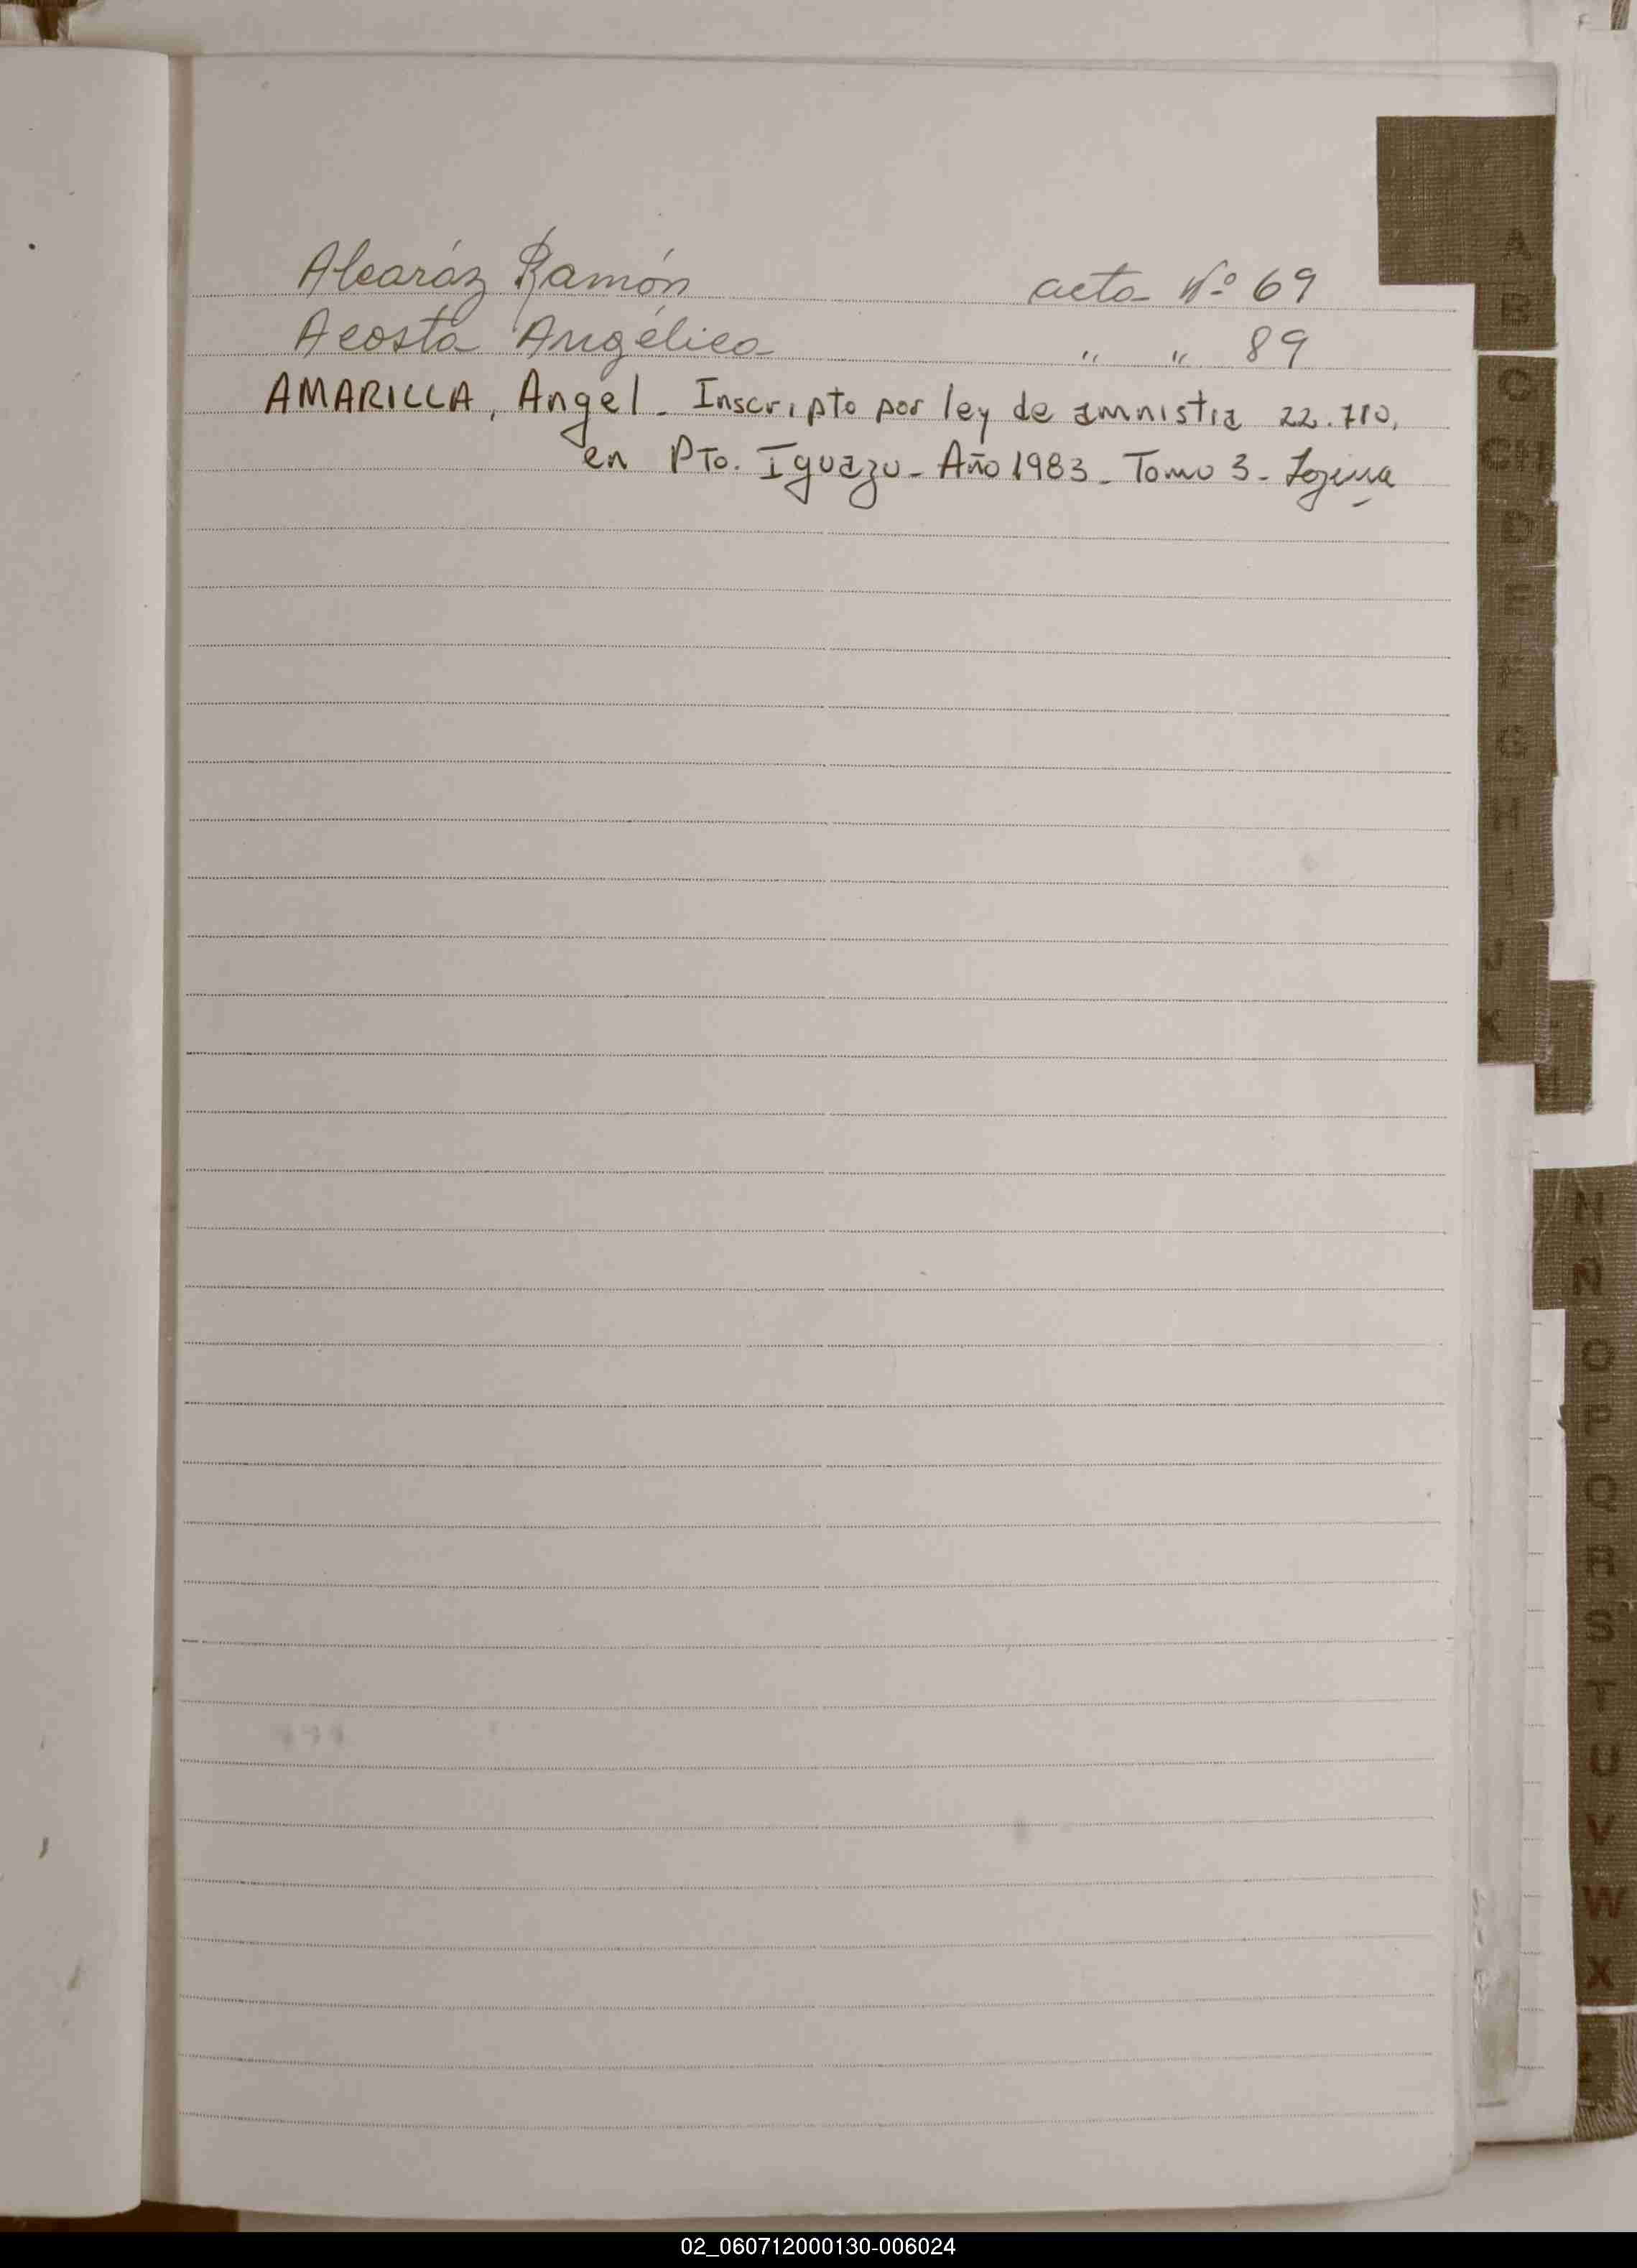 Alcaráz Ramón acta Nº 69
Acosta Angélica " " 89
AMARILLA, Angel - Inscripto por ley de amnistia 22.710,
en Pto. Iguazu - Año 1983 - Tomo 3 -
A
B
C
CH
D
E
F
G
H
I
J
K
N
Ñ
O
P
Q
R
S
T
U
V
W
X
02_060712000130-006024